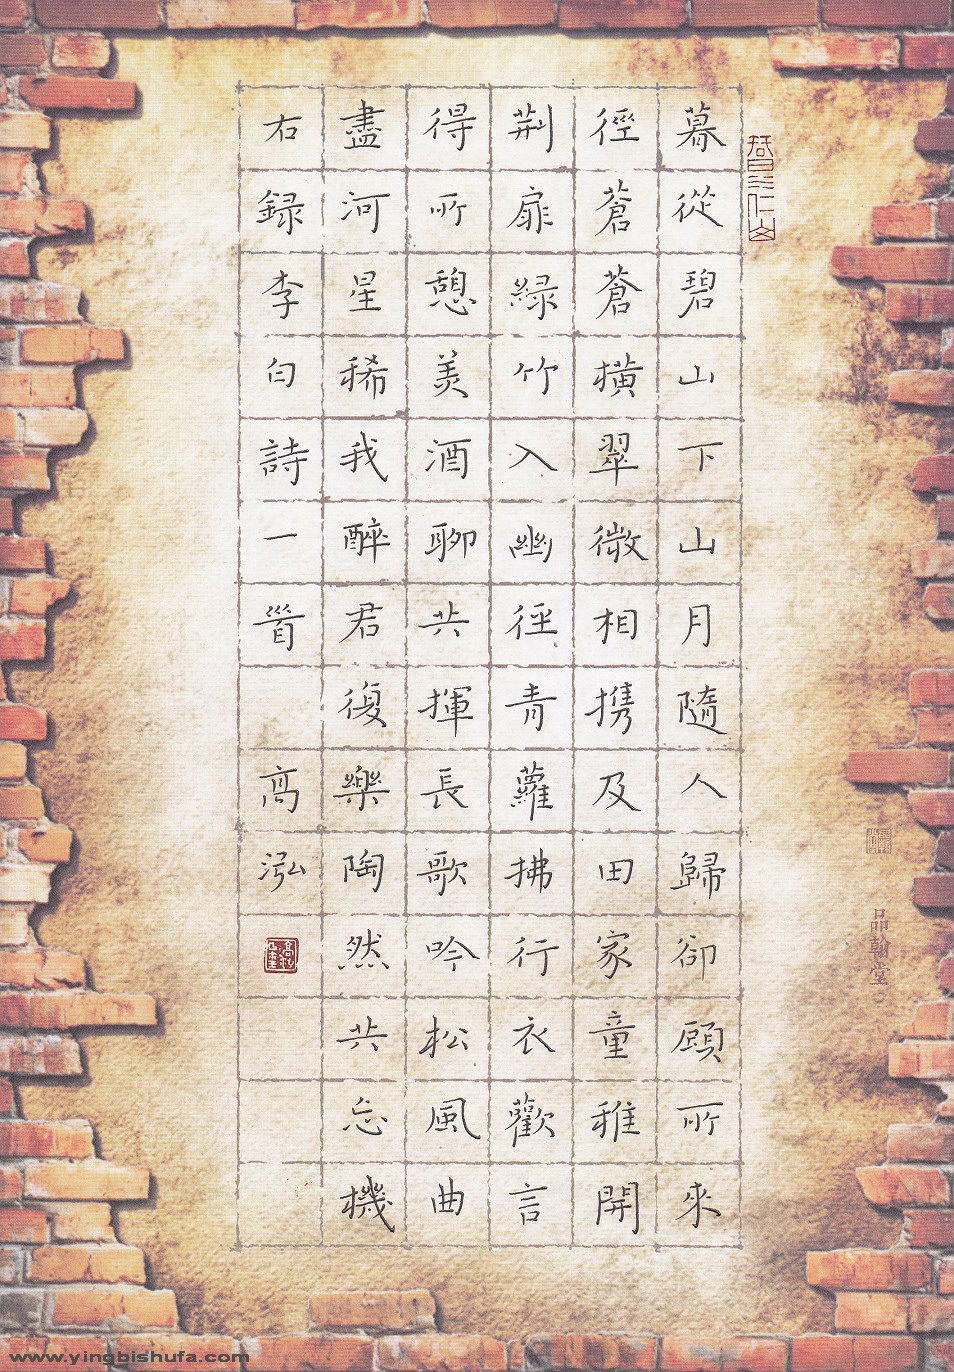 暮從碧山下山月隨人歸卻顧所來
徑蒼蒼橫翠微相携及田家童稚開
荆扉緑竹入幽徑青蘿拂行衣歡言
得所憩美酒聊共揮長歌吟松風曲
盡河星稀我醉君復樂陶然共忘機
右録李白詩一首 高泓
品翰堂
www.yingbishufa.com